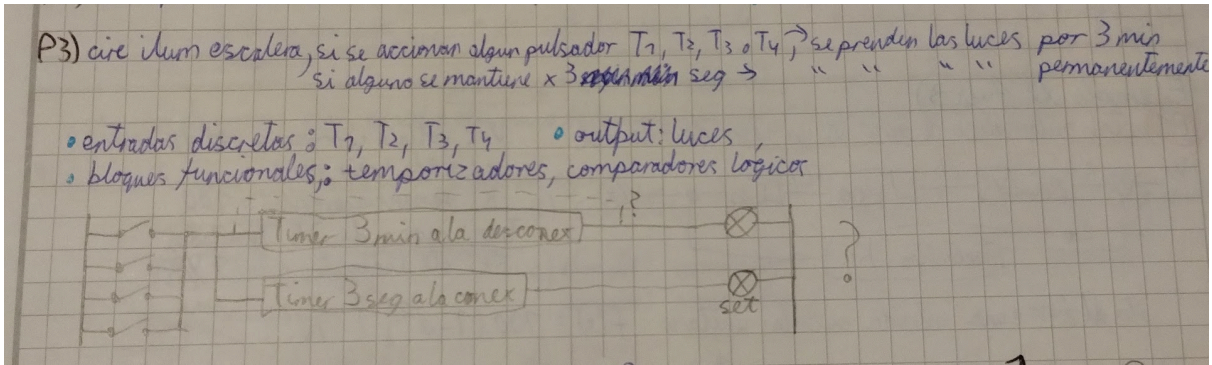 P3) circ ilum escalera, si se accionan algun pulsador T1, T2, T3 o T4, → se prenden las luces por 3 min
si alguno se mantiene x 3 seg → " " " " permanentemente
• entradas discretas: T1, T2, T3, T4 • output: luces,
• bloques funcionales,: temporizadores, comparadores logicos
¿?
Timer 3 min a la desconex
?
Timer 3 seg a la conex
set